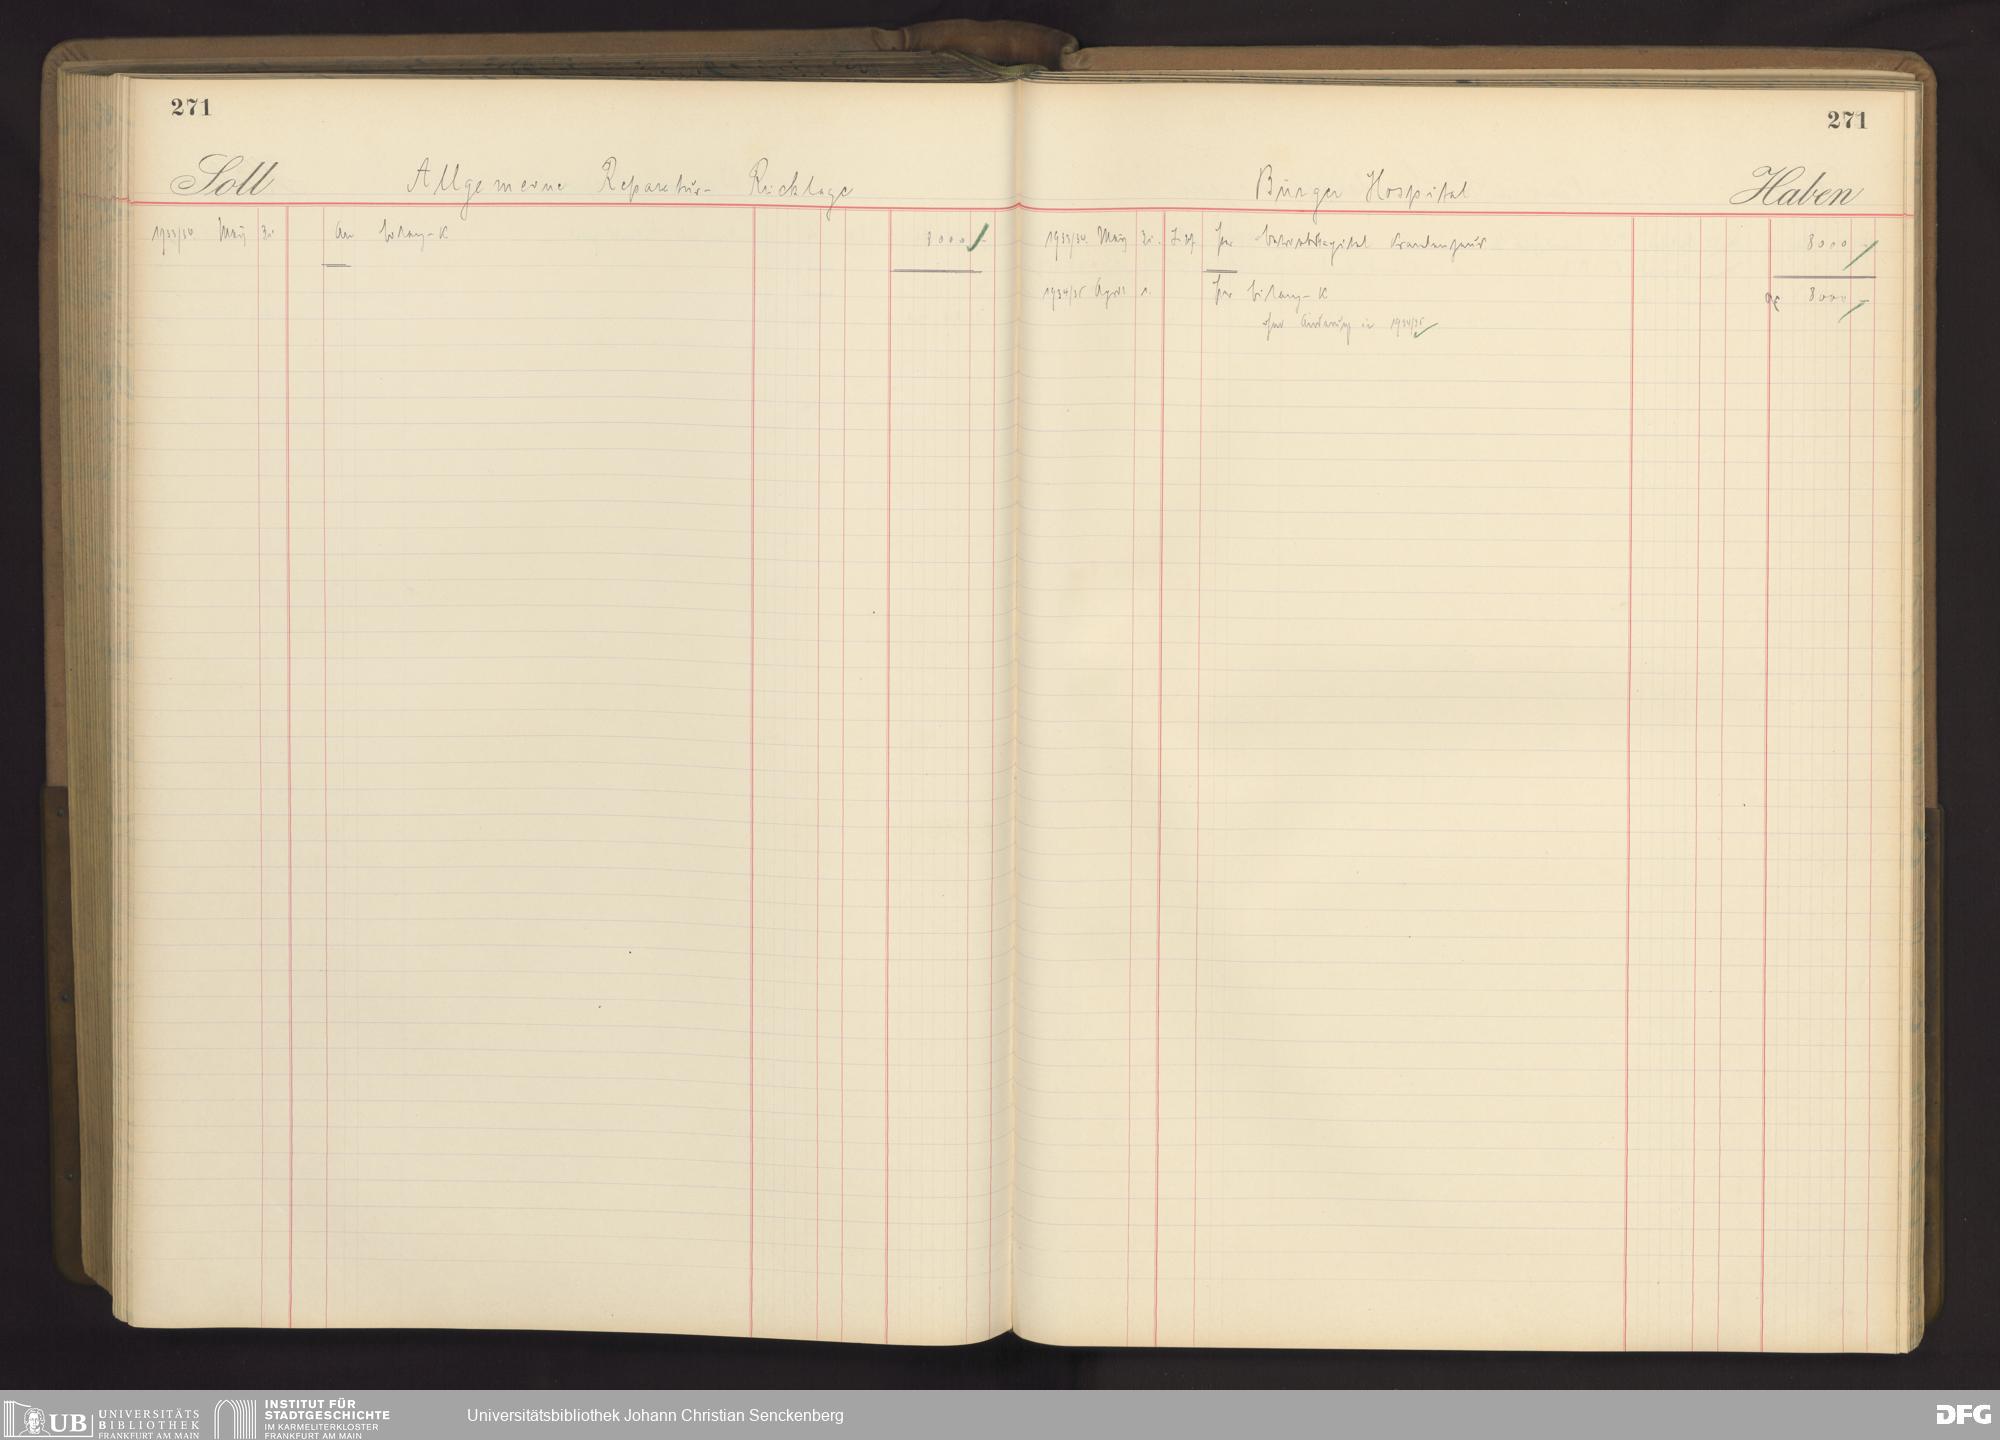 271
Soll Allgemeine Reparatur- Rücklage
1933/34 März 31. An Bilanz-K 8000 -
271
Bürger Hospital Haben
1933/34. März 31. Per Betriebskapital Krankenhaus 8000 -
1934/35 April 1. Per Bilanz-K 8000 -
in 1934/35
UB UNIVERSITÄTS
BIBLIOTHEK
FRANKFURT AM MAIN
INSTITUT FÜR
STADTGESCHICHTE
IM KARMELITERKLOSTER
FRANKFURT AM MAIN
Universitätsbibliothek Johann Christian Senckenberg
DFG